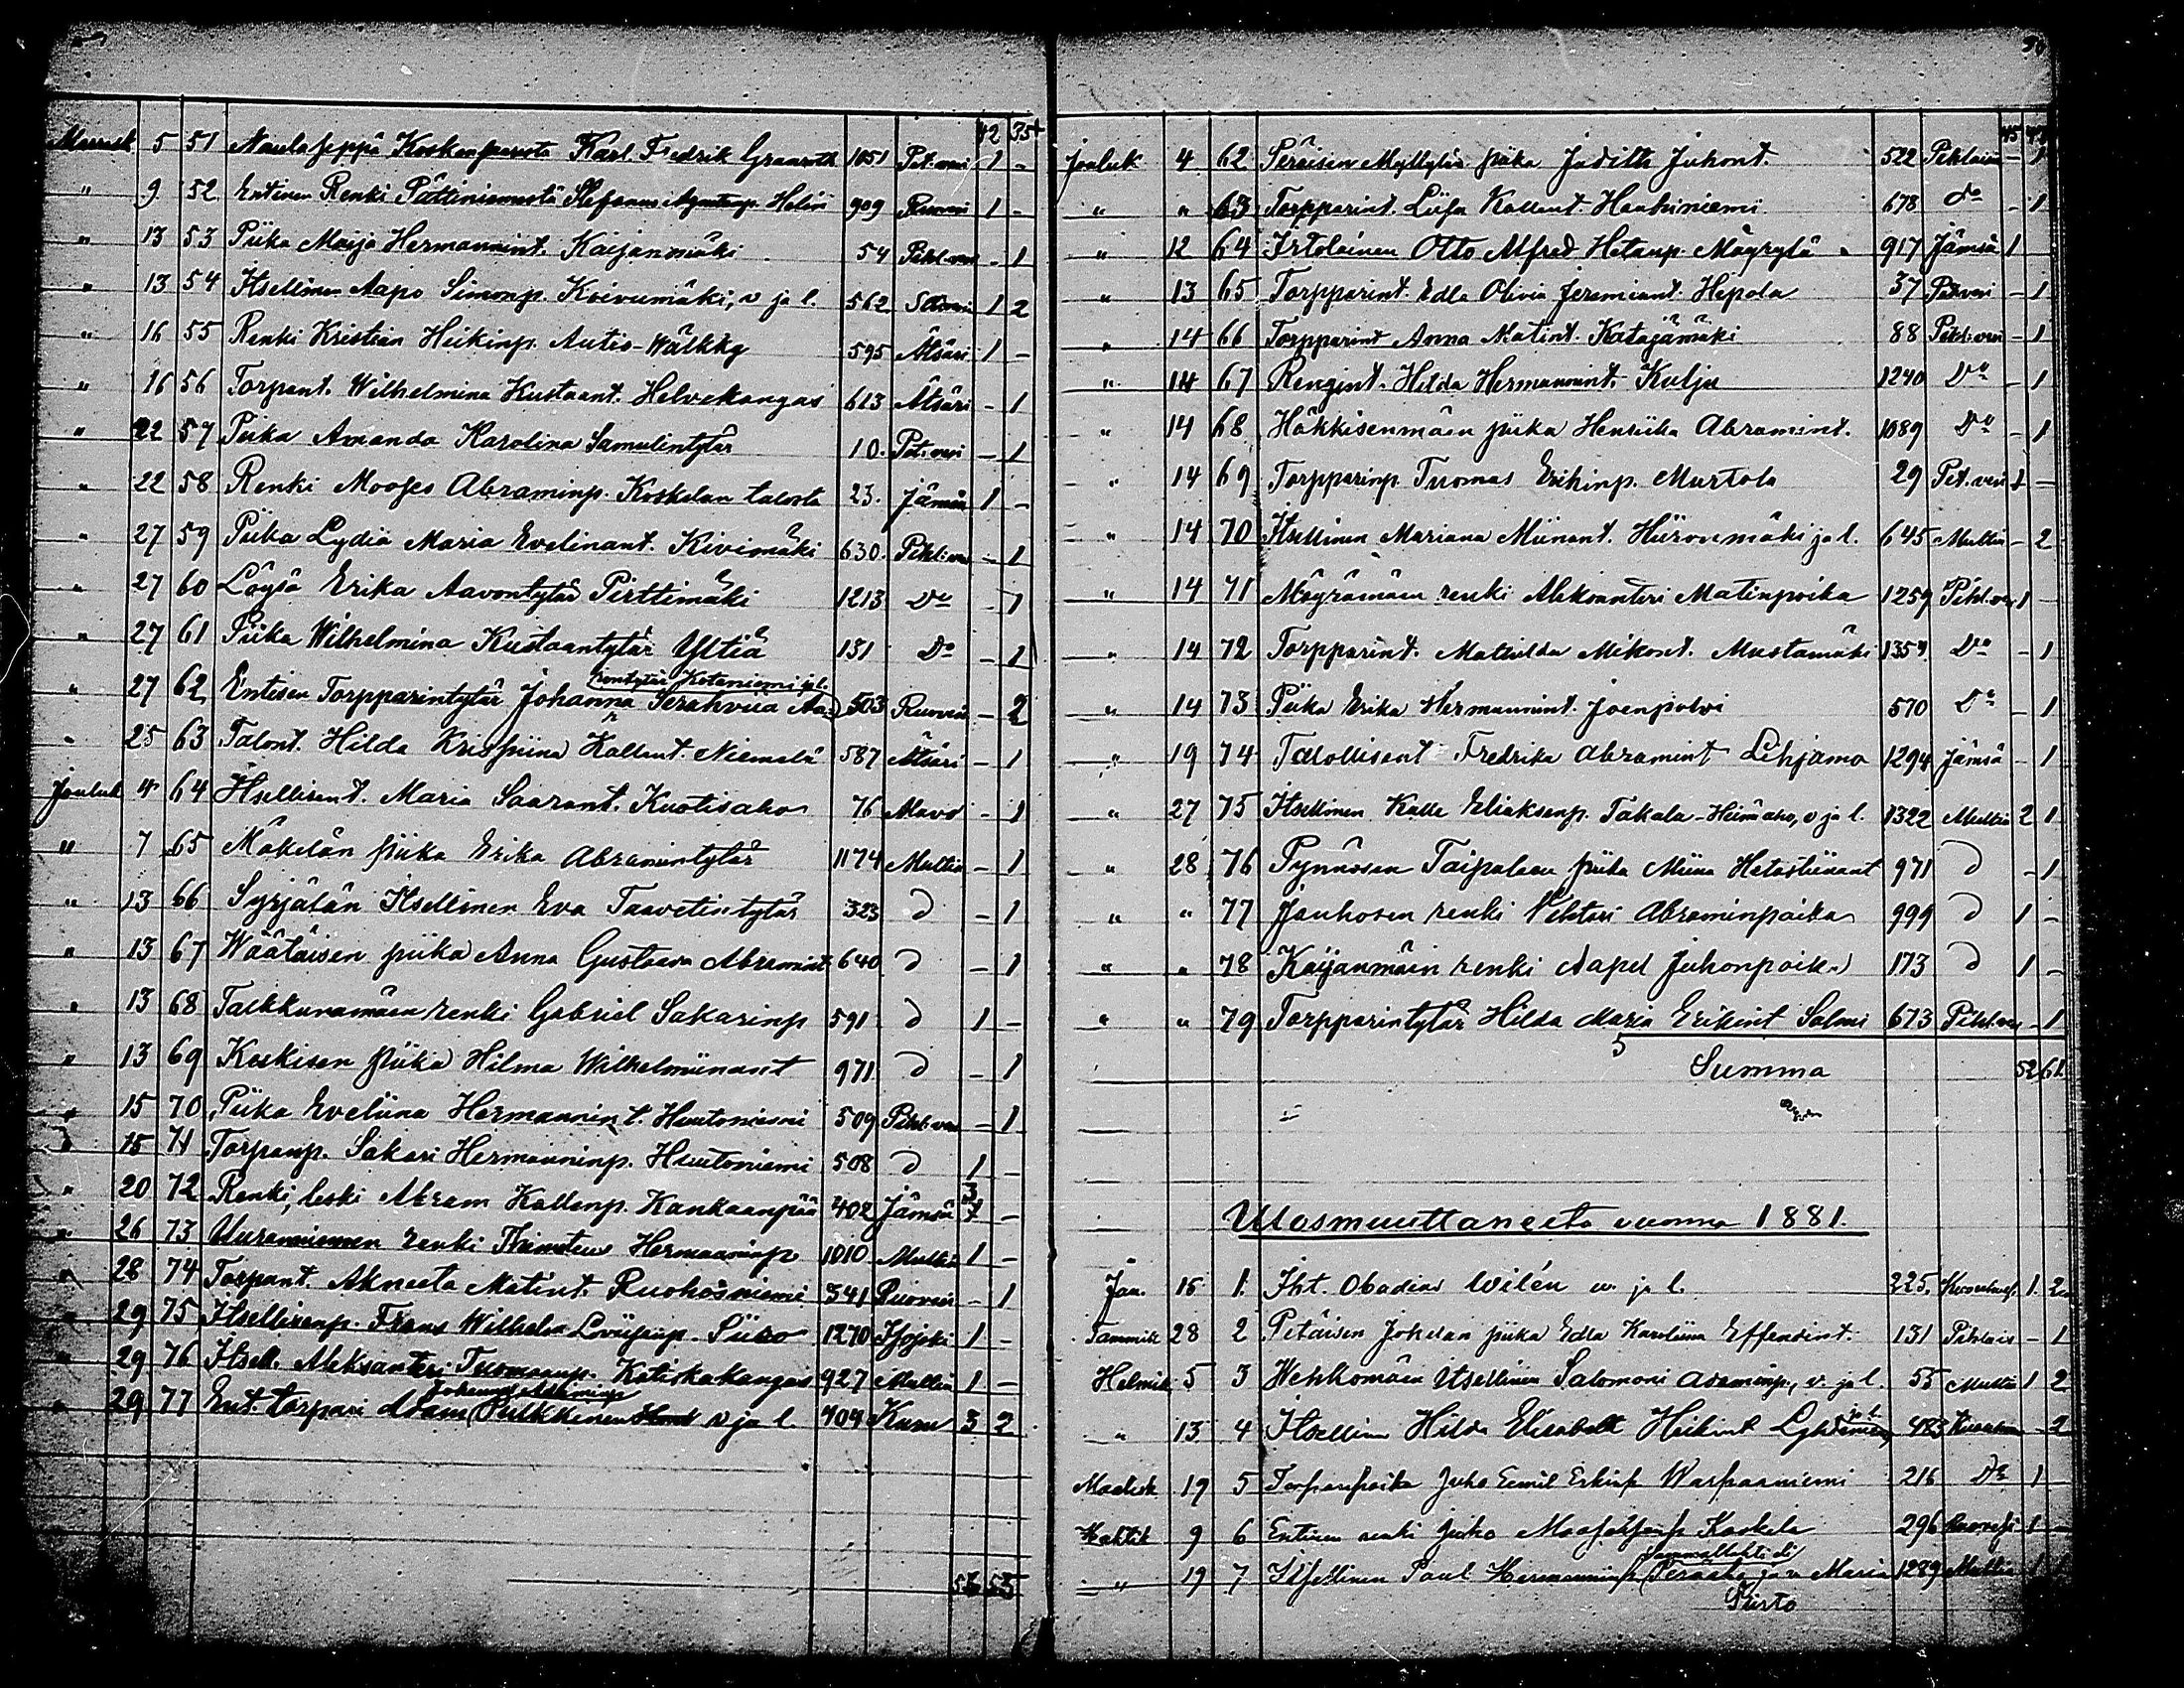 42 35
Marrask 5 51 Naulaseppä Koskenpanosta Karl Fredrik Granroth 1051 Pet.vesi 1 -
" 9 52 Entinen Renki Pättiniemestä Stefanus Helin 909 Ruovesi 1 -
" 13 53 Piika Maija Hermannint. Kaijanmäki 54 Pihl.vesi - 1
" 13 54 Itsellinen Aapo Simonp. Koivumäki, v ja l. 562 1 2
" 16 55 Renki Kristian Heikinp. Autio-Wälkky 595 Ätsäri 1 -
" 16 56 Torpant. Wilhelmina Kustaant. Helvekangas 613 Ätsäri - 1
" 22 57 Piika Amanda Karolina Samulintytär 10. Pet.vesi - 1
" 22 58 Renki Mooses Abraminp. Koskelan talosta 23. Jämsä 1 -
" 27 59 Piika Lydia Maria Evelinant. Kivimäki 630. Pihl.ves - 1
" 27 60 Löysä Erika Aavontytär Pirttimäki 1213 Do - 1
" 27 61 Piika Wilhelmina Kustaantytär Yltiä 131 Do - 1
rontytär Kotaniemi ja l.
" 27 62 Entisen Torpparintytär Johanna Serahviia Aa- 503 Ruovesi - 2
" 25 63 Talont. Hilda Krispiina Kallent. Niemelä 587 Ätsäri - 1
Jouluk 4 64 Itsellisent. Maria Saarant. Kuotisaho 76 - 1
" 7 65 Mäkelän piika Erika Abramintytär 1174 Multia - 1
" 13 66 Syrjälän Itsellinen Eva Taavetintytär 323 D - 1
" 13 67 Wäätäisen piika Anna Gustaava Abramint 640 D - 1
" 13 68 Talkkunamäen renki Gabriel Sakarinp 591 D 1 -
" 13 69 Keskisen piika Hilma Wilhelmiinant 971 D - 1
" 15 70 Piika Eveliina Hermannint. Huutoniemi 509 Pihl.ves - 1
" 15 71 Torpanp. Sakari Hermanninp. Huutoniemi 508 D 1 -
" 20 72 Renki, leski Abram Kallenp. Kankaanpää 402 Jämsä 3 -
" 26 73 renki Hermanninp 1010 Multia 1 -
" 28 74 Torpant. Akneeta Matint. Ruohosniemi 341 Ruovesi - 1
" 29 75 Itsellisenp. Frans Wilhelm Siiro 1270 1 -
" 29 76 Itsell. Aleksanteri Tuomaanp. Katiskakangas 927 Multia 1 -
" 29 77 Ent. torpari Adam Pulkkinen v ja l 404 Kuru 3 2
53 53
45 42
Jouluk 4 62 Peräisen Myllylän piika Juditta Juhont. 522 Pihlais - 1
" " 63 Torpparint. Liisa Kallent. Haukiniemi 678 Do - 1
" 12 64 Irtolainen Otto Alfred Hetanp. Mäyrylä 917 Jämsä 1
" 13 65 Torpparint. Edla Olivia Jeremiant. Hepola 37 Pet.vesi - 1
" 14 66 Torpparint Anna Matint. Katajamäki 88 Pihl.vesi - 1
" 14 67 Rengint. Hilda Hermannint. Kulju 1240 Do - 1
" 14 68 Häkkisenmäen piika Henriika Abramint. 1089 Do - 1
" 14 69 Torpparinp. Tuomas Erikinp. Murtola 29 Pet.vesi 1 -
" 14 70 Itsellinen Mariana Miinant. Hiironmäki ja l. 645 Multia - 2
" 14 71 Mäyrämäen renki Aleksanteri Matinpoika 1259 Pihl.ves 1
" 14 72 Torpparint. Mathilda Mikont. Mustamäki 1359 Do - 1
" 14 73 Piika Erika Hermannint. Joenpolvi 570 Do - 1
" 19 74 Talollisent Fredrika Abramint Lihjamo 1294 Jämsä - 1
" 27 75 Itsellinen Kalle Eliaksenp. Takala-Heinäaho, v ja l. 1322 Multia 2 1
" 28 76 Pynnösen Taipaleen piika Miina Hetastiinant 971 D - 1
" " 77 Jouhosen renki Vihtori Abraminpoika 999 D 1 -
" " 78 Kaijanmäen renki Aapel Juhonpoika 173 D 1 -
" " 79 Torpparintytär Hilda Maria Erikint Salmi 673 Pihl.ves - 1
Summa 52 61
Ulosmuuttaneita vuonna 1881.
Jan. 15 1. Iht. Obadias Wilén w. ja l. 225. 1. 2
Tammik 28 2 Petäisen Johdan piika Edla Karoliina Effendint. 131 Pihlais - 1
Helmik 5 3 Wehkomäen Itsellinen Salomoni Adaminp., v. ja l. 55 Multia 1 2
" 13 4 Itsellinen Hilda Elisabett Heikint ja l. 483 - 2
Maalisk 19 5 Torparipoika Juho Eemil Erkinp Warpaaniemi 216 Do 1
Huhtik 9 6 Entinen renki Juho Koskela 296 Ruovesi 1 -
" 19 7 Itsellinen Paul Hermanninp Peraaho ja v. Maria 1289 Multia
Siirto